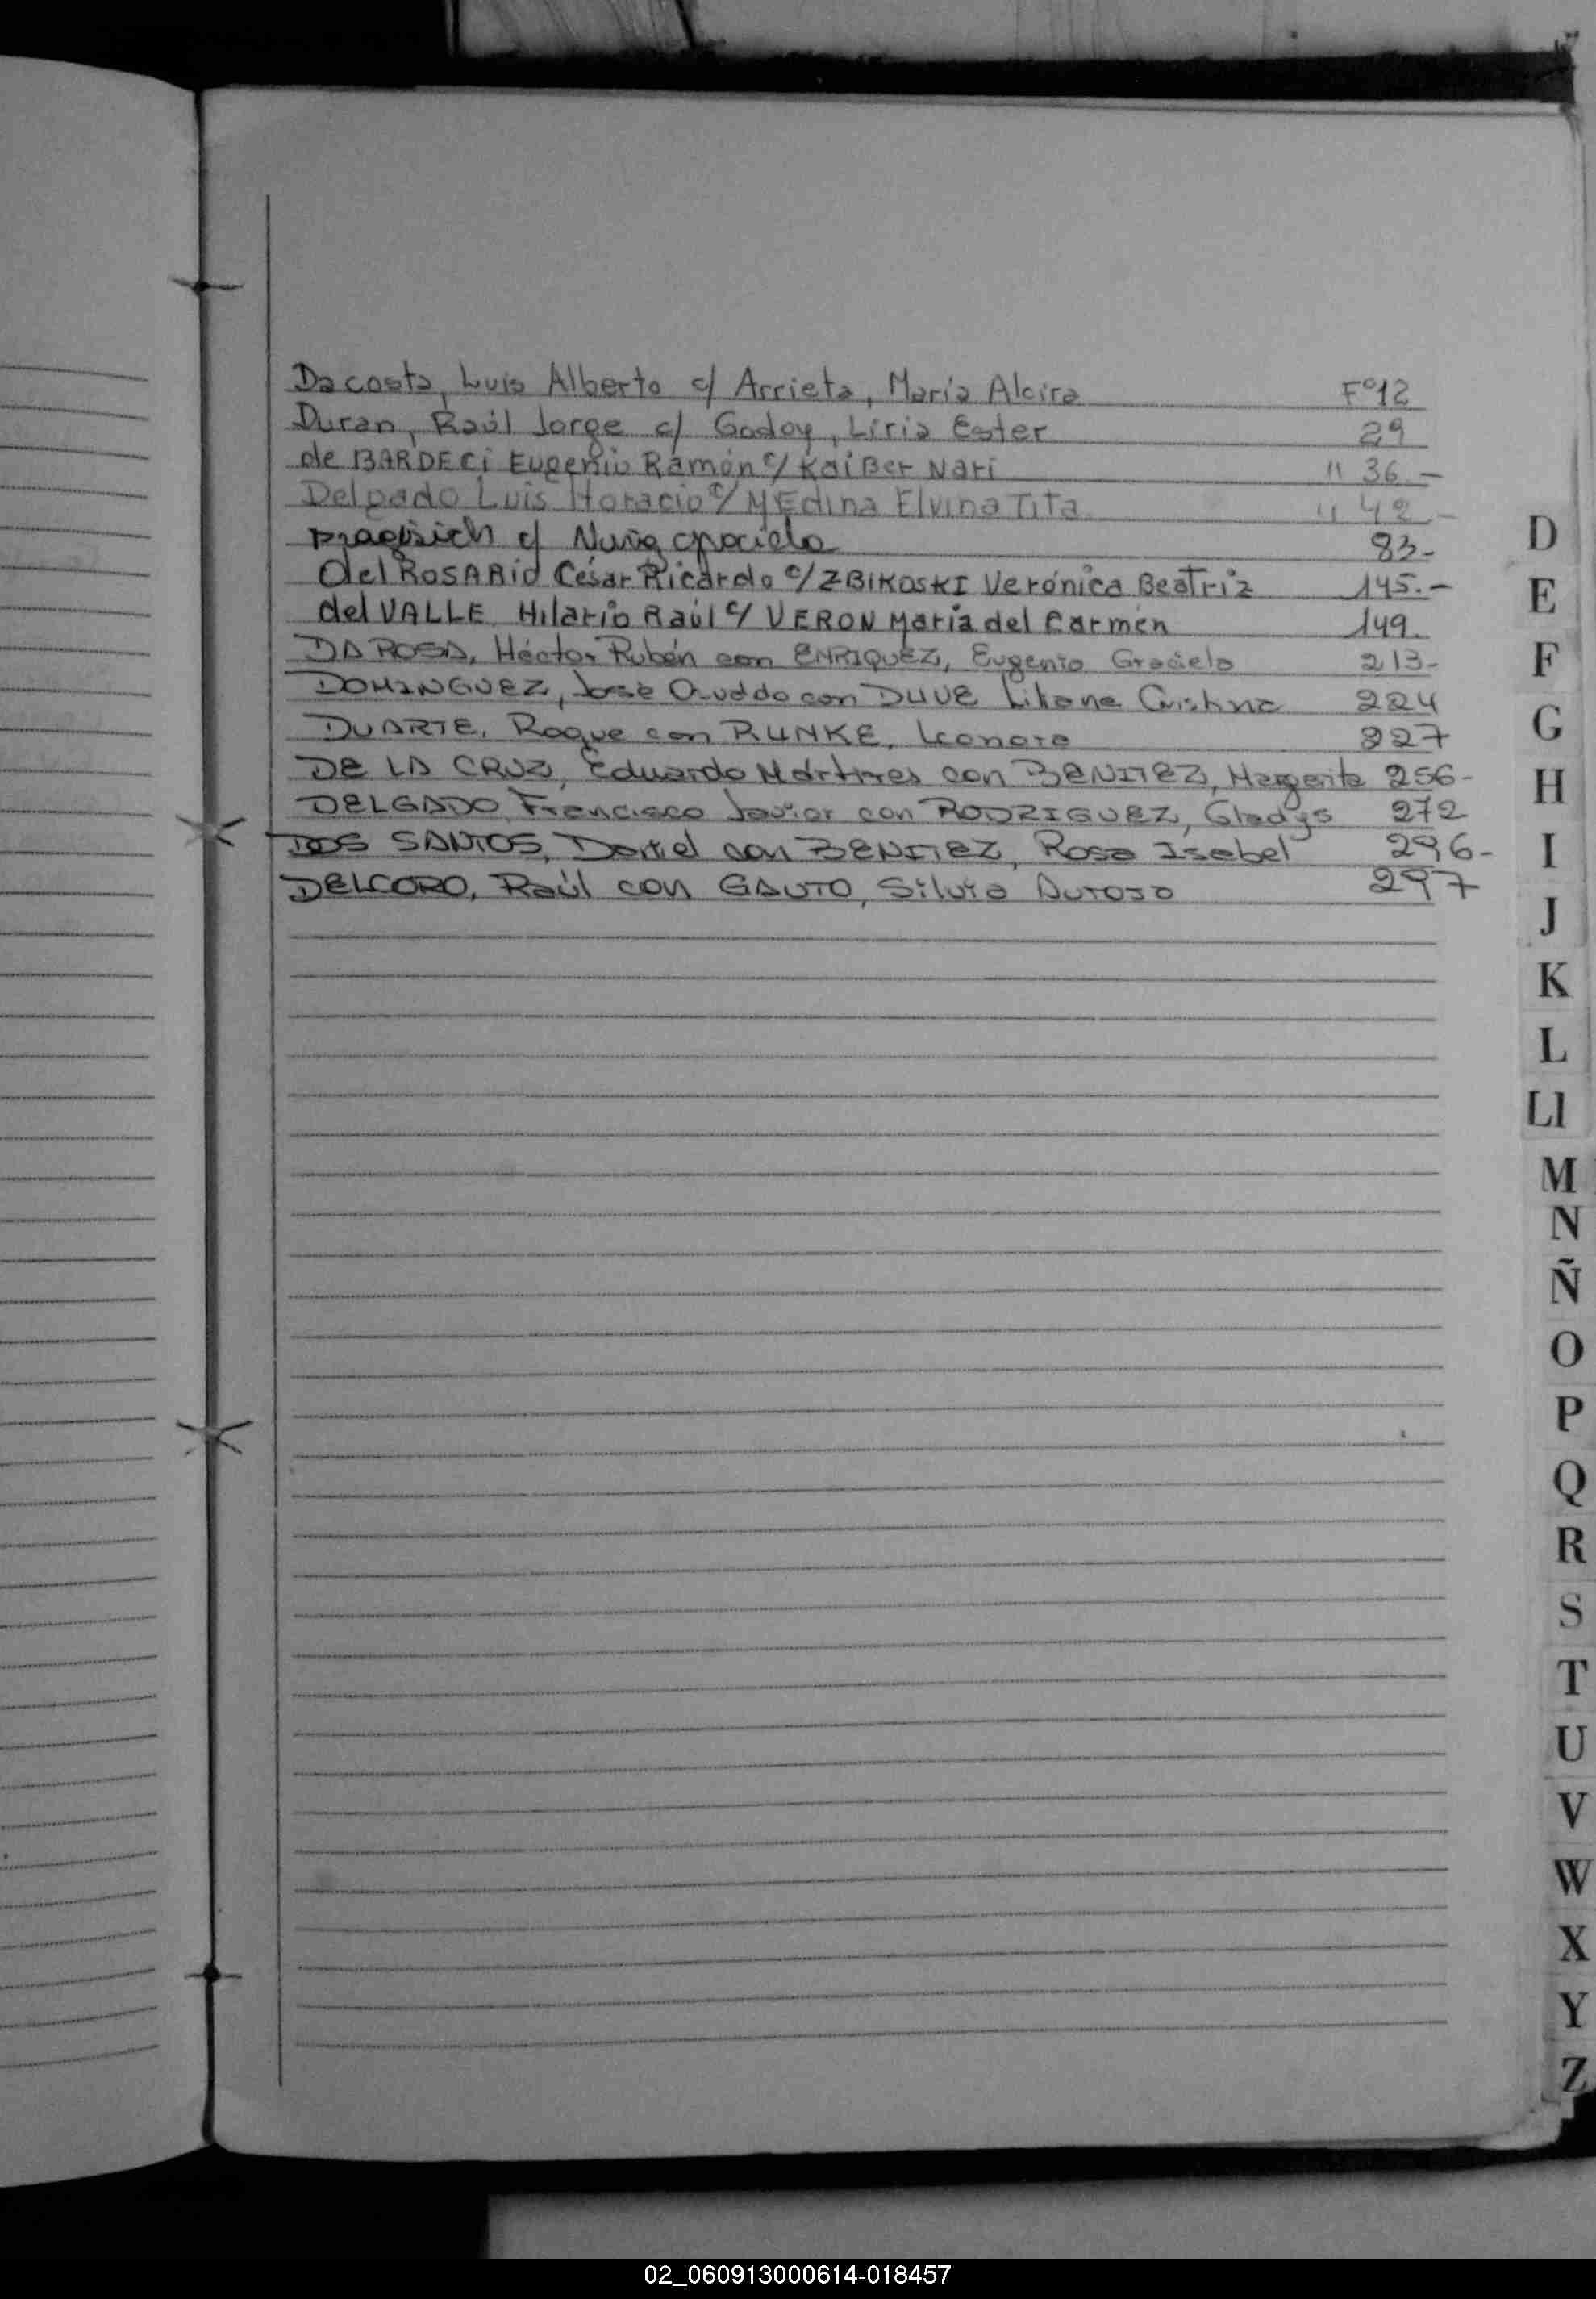 Dacosta, Luis Alberto c/ Arrieta, María Alcira F°12
Duran, Raúl Jorge c/ Godoy, Liria Ester 29
de BARDECi Eugenio Ramón c/ KaiBer Nari " 36.-
Delgado Luis Horacio c/ MEdina Elvina Tita " 42.-
c/ 83-
del ROSARio César Ricardo c/ ZBIKOSKI Verónica Beatriz 145.-
del VALLE Hilario Raúl c/ VERON María del Carmen 149.
DA ROSA, Héctor Rubén con ENRIQUEZ, Eugenia Graciela 213-
DOMINGUEZ, José con DUVE Liliana Cristina 224
DUARTE, Roque con RUNKE, Leonora 227
DE LA CRUZ, Eduardo con BENITEZ, Margarita 256-
DELGADO, Francisco Javier con RODRIGUEZ, Gladys 272
DOS SANTOS, Daniel con BENITEZ, Rosa Isabel 296-
DELCORO, Raúl con GAUTO, Silvia 297
D
E
F
G
H
I
J
K
L
Ll
M
N
Ñ
O
P
Q
R
S
T
U
V
W
X
Y
Z
02_060913000614-018457